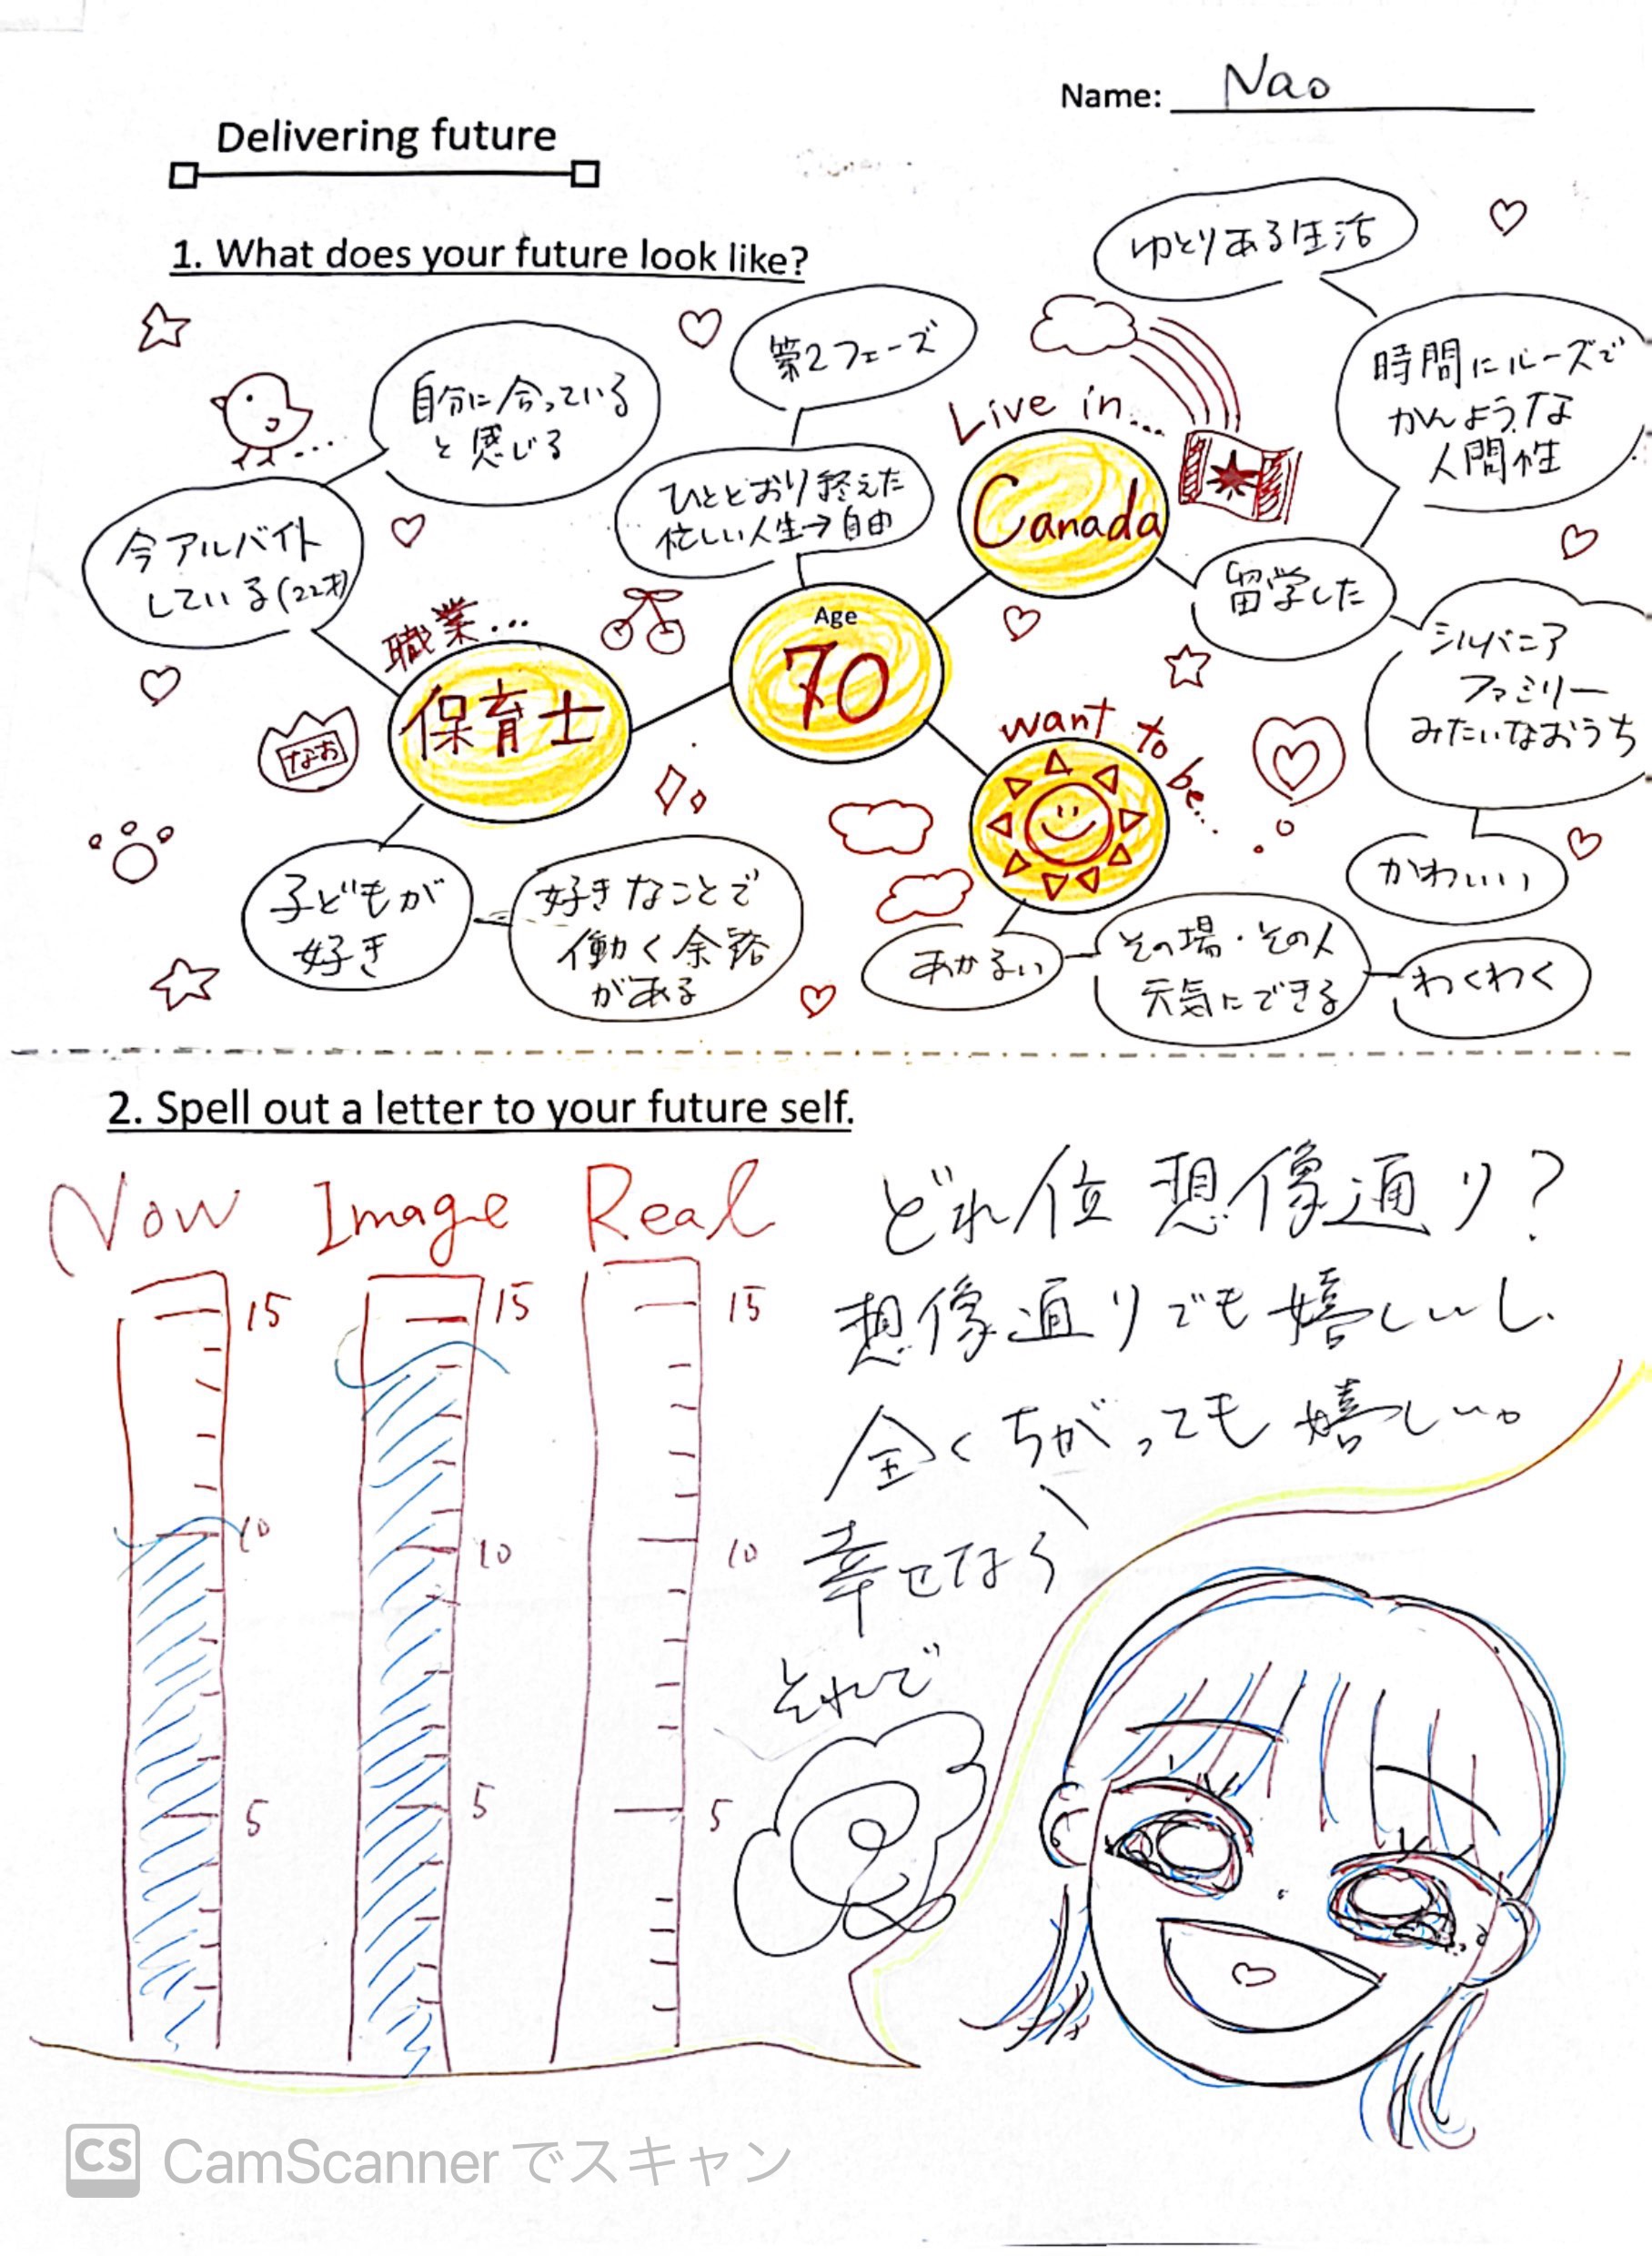 Name: Nao
Delivering future
1. What does your future look like?
ゆとりある生活
時間にルーズで
かんような
人間性
第2フェーズ
自分に合っている
と感じる
Live in...
Canada
ひととおり終えた
忙しい人生→自由
今アルバイト
している(22才)
留学した
職業...
保育士
Age
70
シルバニア
ファミリー
みたいなおうち
want to be...
なお
かわいい
子どもが
好き
好きなことで
働く余裕
がある
あかるい
その場・その人
元気にできる
わくわく
2. Spell out a letter to your future self.
Now Image Real
15 15 15
10 10 10
5 5 5
どれ位想像通り?
想像通りでも嬉しいし、
全くちがっても嬉しい。
幸せなら
それで
CS CamScannerでスキャン